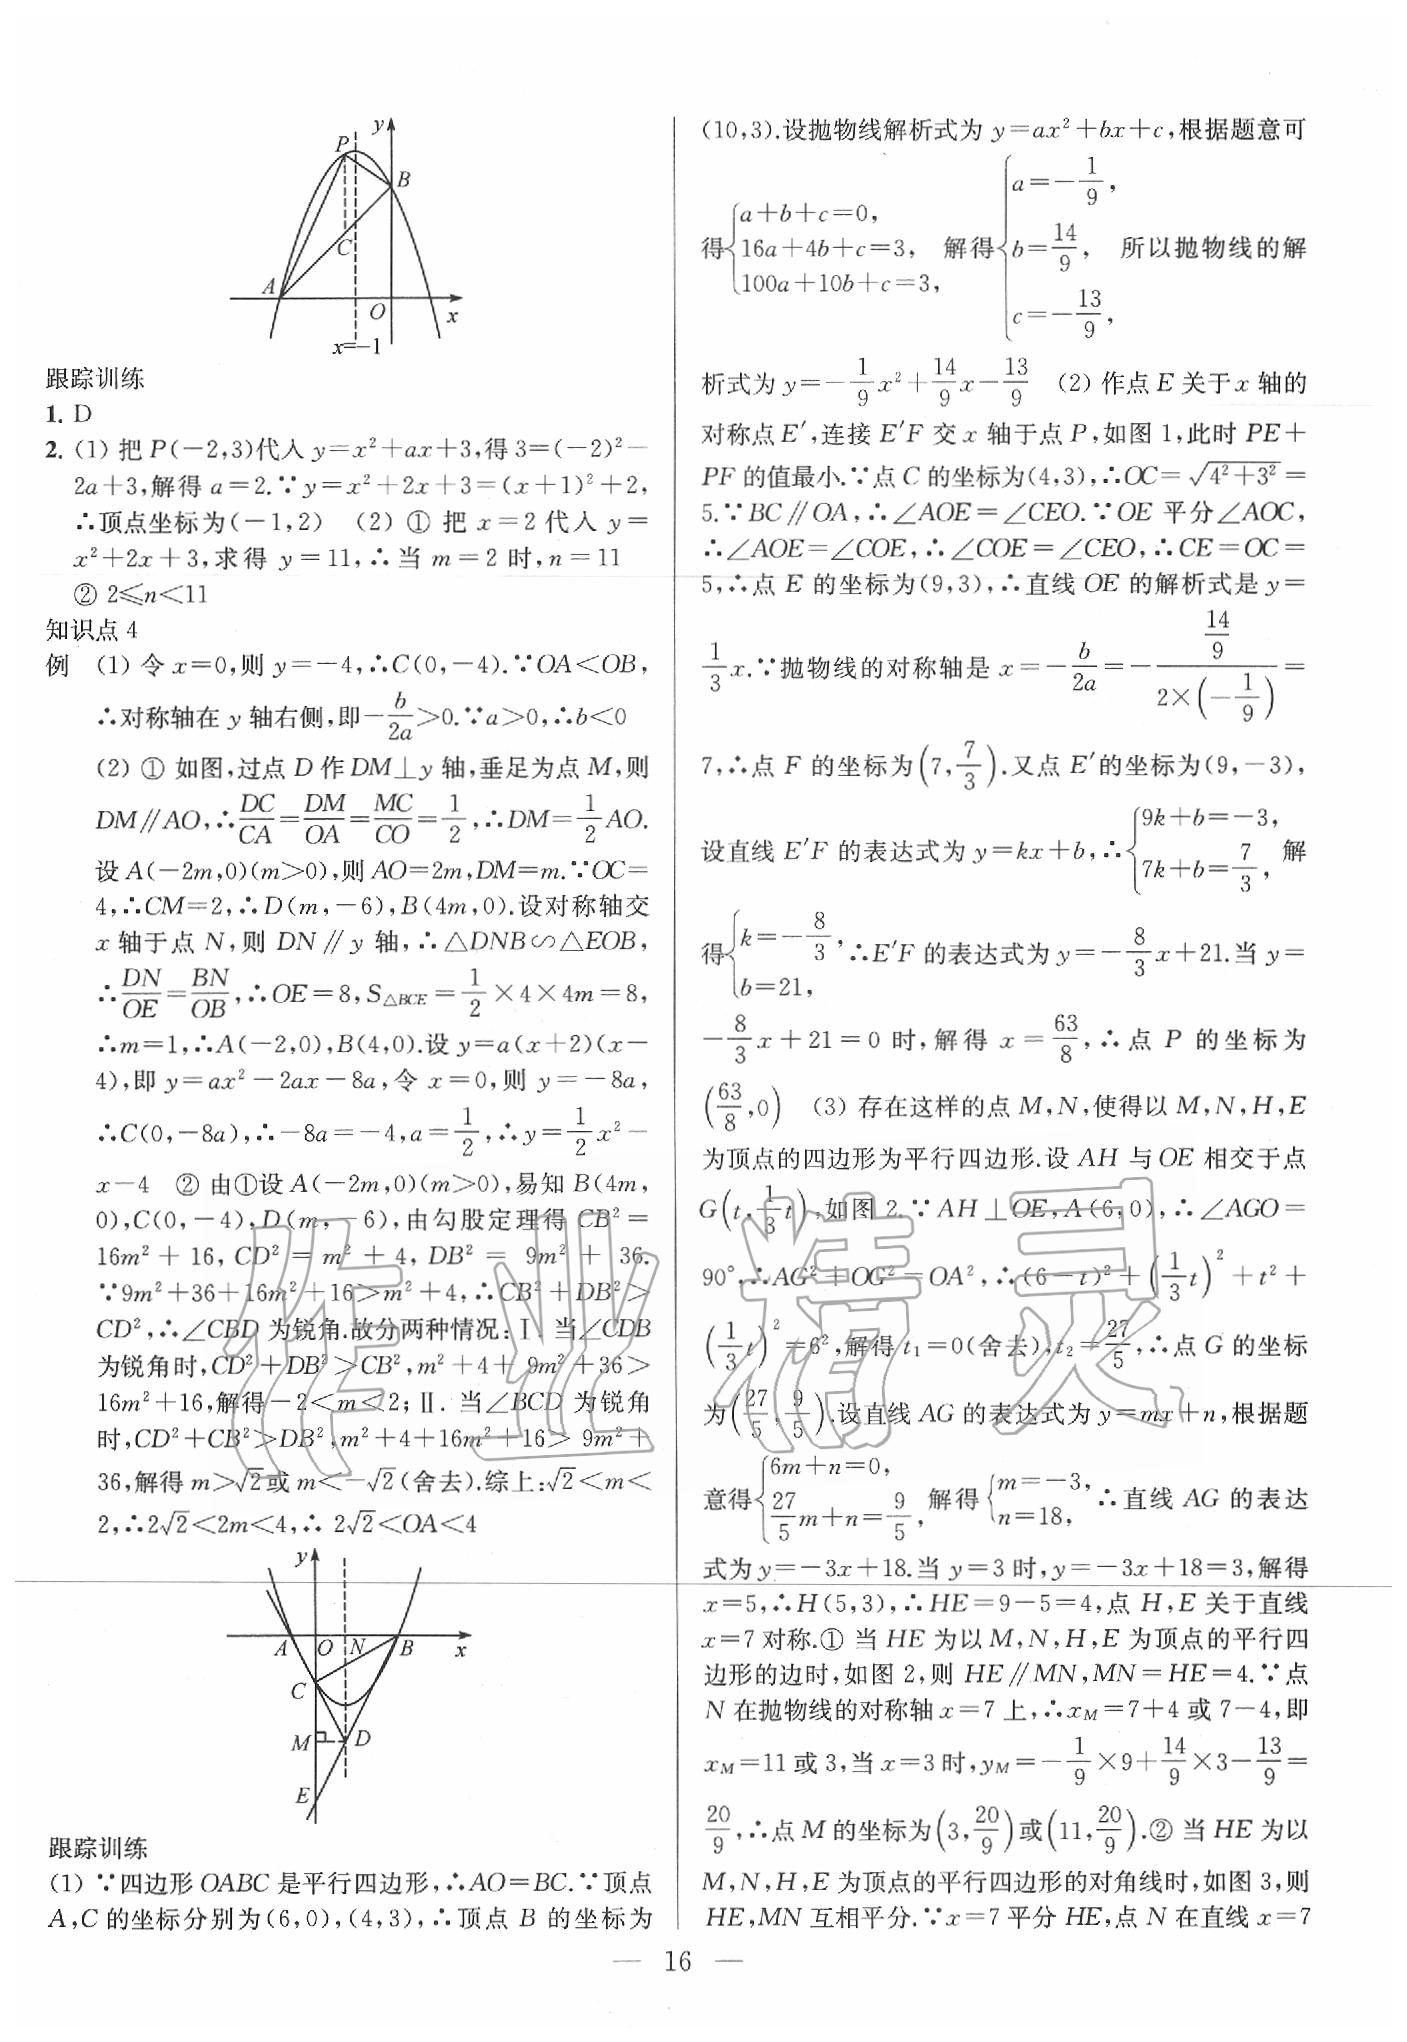 y
P
B
C
A
O
x
x=-1
跟踪训练
1. D
2. (1) 把 P(-2,3)代入 y=x²+ax+3,得 3=(-2)²-
2a+3,解得 a=2.∵y=x²+2x+3=(x+1)²+2,
∴顶点坐标为(-1,2) (2) ① 把 x=2 代入 y=
x²+2x+3,求得 y=11,∴当 m=2 时,n=11
② 2≤n<11
知识点 4
例 (1) 令 x=0,则 y=-4,∴C(0,-4).∵OA<OB,
∴对称轴在 y 轴右侧,即-b/2a>0.∵a>0,∴b<0
(2) ① 如图,过点 D 作 DM⊥y 轴,垂足为点 M,则
DM∥AO,∴DC/CA=DM/OA=MC/CO=1/2,∴DM=1/2AO.
设 A(-2m,0)(m>0),则 AO=2m,DM=m.∵OC=
4,∴CM=2,∴D(m,-6),B(4m,0).设对称轴交
x 轴于点 N,则 DN∥y 轴,∴△DNB∽△EOB,
∴DN/OE=BN/OB,∴OE=8,S△BCE=1/2×4×4m=8,
∴m=1,∴A(-2,0),B(4,0).设 y=a(x+2)(x-
4),即 y=ax²-2ax-8a,令 x=0,则 y=-8a,
∴C(0,-8a),∴-8a=-4,a=1/2,∴y=1/2x²-
x-4 ② 由①设 A(-2m,0)(m>0),易知 B(4m,
0),C(0,-4),D(m,-6),由勾股定理得 CB²=
16m²+16,CD²=m²+4,DB²=9m²+36.
∵9m²+36+16m²+16>m²+4,∴CB²+DB²>
CD²,∴∠CBD 为锐角.故分两种情况:Ⅰ. 当∠CDB
为锐角时,CD²+DB²>CB²,m²+4+9m²+36>
16m²+16,解得-2<m<2;Ⅱ. 当∠BCD 为锐角
时,CD²+CB²>DB²,m²+4+16m²+16>9m²+
36,解得 m>√2或 m<-√2(舍去).综上:√2<m<
2,∴2√2<2m<4,∴2√2<OA<4
y
A
O
N
B
x
C
M
D
E
跟踪训练
(1) ∵四边形 OABC 是平行四边形,∴AO=BC.∵顶点
A,C 的坐标分别为(6,0),(4,3),∴顶点 B 的坐标为
(10,3).设抛物线解析式为 y=ax²+bx+c,根据题意可
得{a+b+c=0, 16a+4b+c=3, 100a+10b+c=3, 解得{a=-1/9, b=14/9, c=-13/9, 所以抛物线的解
析式为 y=-1/9x²+14/9x-13/9 (2) 作点 E 关于 x 轴的
对称点 E′,连接 E′F 交 x 轴于点 P,如图 1,此时 PE+
PF 的值最小.∵点 C 的坐标为(4,3),∴OC=√(4²+3²)=
5.∵BC∥OA,∴∠AOE=∠CEO.∵OE 平分∠AOC,
∴∠AOE=∠COE,∴∠COE=∠CEO,∴CE=OC=
5,∴点 E 的坐标为(9,3),∴直线 OE 的解析式是 y=
1/3x.∵抛物线的对称轴是 x=-b/2a=-(14/9)/(2×(-1/9))=
7,∴点 F 的坐标为(7,7/3).又点 E′的坐标为(9,-3),
设直线 E′F 的表达式为 y=kx+b,∴{9k+b=-3, 7k+b=7/3, 解
得{k=-8/3, b=21, ∴E′F 的表达式为 y=-8/3x+21.当 y=
-8/3x+21=0 时,解得 x=63/8,∴点 P 的坐标为
(63/8,0) (3) 存在这样的点 M,N,使得以 M,N,H,E
为顶点的四边形为平行四边形.设 AH 与 OE 相交于点
G(t,1/3t),如图 2.∵AH⊥OE,A(6,0),∴∠AGO=
90°,∴AG²+OG²=OA²,∴(6-t)²+(1/3t)²+t²+
(1/3t)²=6²,解得 t₁=0(舍去),t₂=27/5,∴点 G 的坐标
为(27/5,9/5).设直线 AG 的表达式为 y=mx+n,根据题
意得{6m+n=0, 27/5m+n=9/5, 解得{m=-3, n=18, ∴直线 AG 的表达
式为 y=-3x+18.当 y=3 时,y=-3x+18=3,解得
x=5,∴H(5,3),∴HE=9-5=4,点 H,E 关于直线
x=7 对称.① 当 HE 为以 M,N,H,E 为顶点的平行四
边形的边时,如图 2,则 HE∥MN,MN=HE=4.∵点
N 在抛物线的对称轴 x=7 上,∴xM=7+4 或 7-4,即
xM=11 或 3,当 x=3 时,yM=-1/9×9+14/9×3-13/9=
20/9,∴点 M 的坐标为(3,20/9)或(11,20/9).② 当 HE 为以
M,N,H,E 为顶点的平行四边形的对角线时,如图 3,则
HE,MN 互相平分.∵x=7 平分 HE,点 N 在直线 x=7
作业精灵
— 16 —